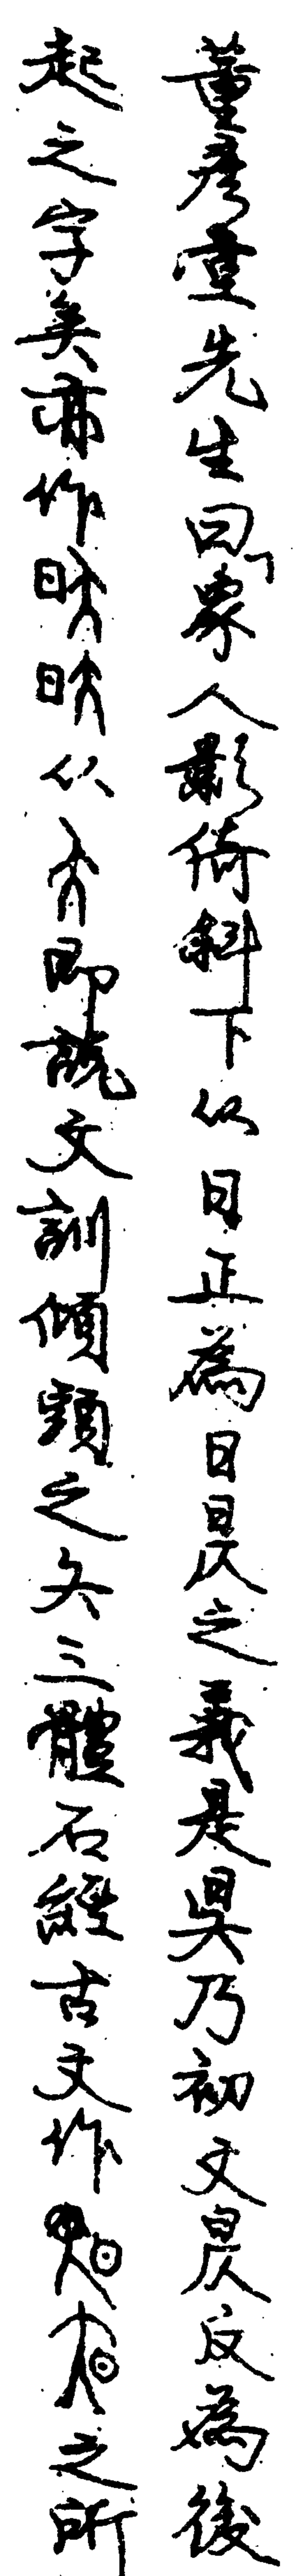 董彥堂先生曰「象人影倚斜下从日正為日昃之義是昊乃初文昃反為後
起之字矣亦作从即說文訓傾頭之夨三體石經古文作之所